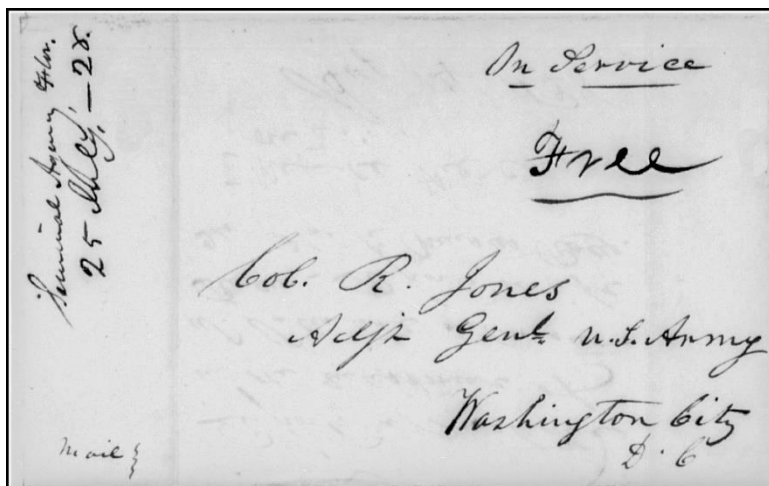 Seminole Agency Flor.
25 May, —28.
On Service
Free
Col. R. Jones
Adjt Genl. U.S. Army
Washington City
D. C
Mail